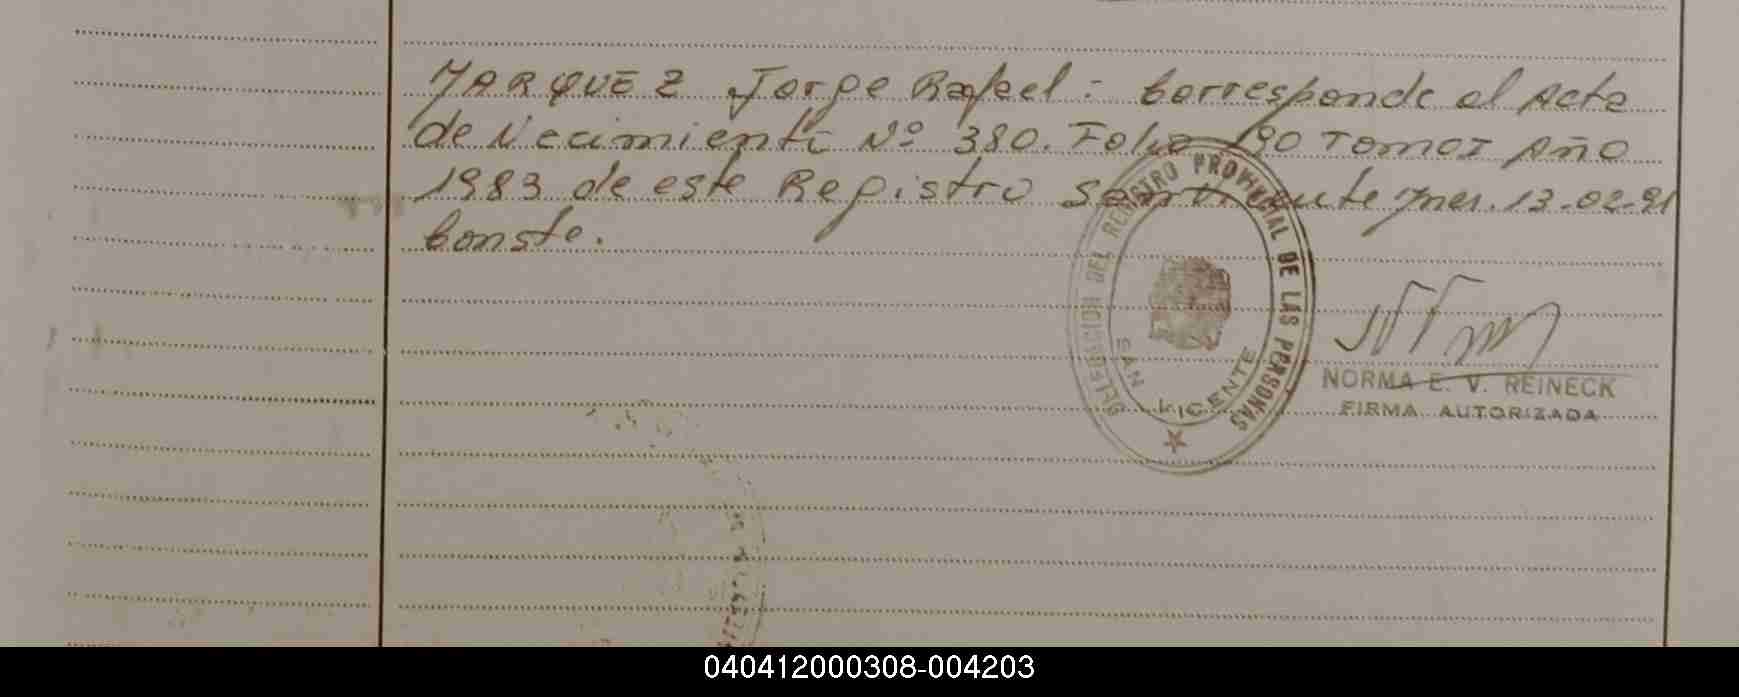 MARQUEZ Jorge Rafael - Corresponde al Acta
de Nacimiento Nº 380. Folio 190 Tomo I Año
1983 de este Registro San Vicente Mnes. 13-02-91
Conste.
DELEGACION DEL REGISTRO PROVINCIAL DE LAS PERSONAS
SAN VICENTE
NORMA E. V. REINECK
FIRMA AUTORIZADA
040412000308-004203